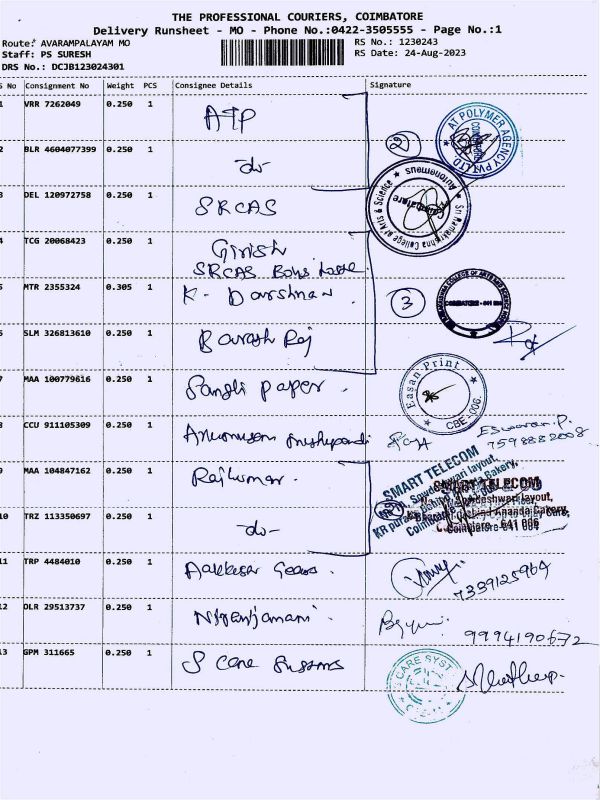 THE PROFESSIONAL COURIERS, COIMBATORE
Delivery Runsheet - MO - Phone No.:0422-3505555 - Page No.:1
Route: AVARAMPALAYAM MO RS No.: 1230243
Staff: PS SURESH RS Date: 24-Aug-2023
DRS No.: DCJB123024301
S No Consignment No Weight PCS Consignee Details Signature
1 VRR 7262049 0.250 1 ATP
AT POLYMER AGENCY PVT LTD
COIMBATORE
2 BLR 4604077399 0.250 1 do- 2
3 DEL 120972758 0.250 1 SRCAS
Sri Ramakrishna College of Arts & Science
Autonomous
Coimbatore
4 TCG 20068423 0.250 1 Girish
SRCAS Boys
5 MTR 2355324 0.305 1 K- Darshnan. 3
COIMBATORE - 641 006
6 SLM 326813610 0.250 1 Raj
7 MAA 100779616 0.250 1 paper.
Easan Print
CBE-006.
8 CCU 911105309 0.250 1
Eswaran.P.
7598882008
9 MAA 104847162 0.250 1 Rajkumar.
SMART TELECOM
Coimbatore - 641 006
10 TRZ 113350697 0.250 1 do-
11 TRP 4484010 0.250 1
7339125964
12 DLR 29513737 0.250 1 Niranjamani.
9994190672
13 GPM 311665 0.250 1 S Care
S CARE SYST